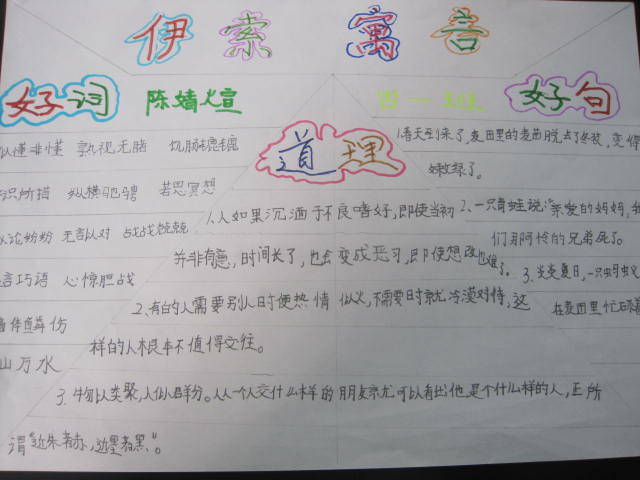 伊索寓言
好词
陈婧煊
四一班
好句
道理
似懂非懂 熟视无睹
识所措 纵横驰骋 若思冥想
议论纷纷 无言以对 战战兢兢
言巧语 心惊胆战
山万水
1.人如果沉酒于不良嗜好,即使当初
并非有意,时间长了,也会变成恶习,即使想改也难了。
2.有的人需要别人时便热情似火,不需要时就冷漠对待,这
样的人根本不值得交往。
3.物以类聚,人以群分。从一个人交什么样的朋友就可以看出他是个什么样的人,正所
谓“近朱者赤,近墨者黑”。
1.春天到来了,麦田里的麦苗脱去了冬装,变得
嫩绿了。
2.一只青蛙说:“亲爱的妈妈,我
们那可怜的兄弟死了。
3.炎炎夏日,一只蚂蚁
在麦田里忙碌着